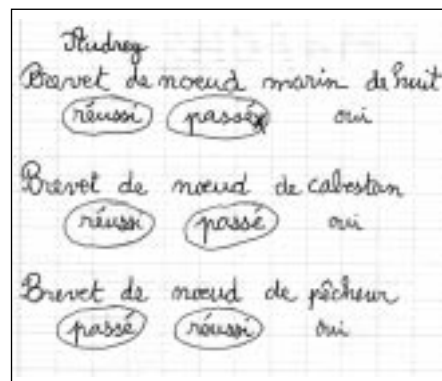 Audrey
Brevet de noeud marin de huit
réussi passé oui
Brevet de nœud de cabestan
réussi passé oui
Brevet de nœud de pêcheur
passé réussi oui